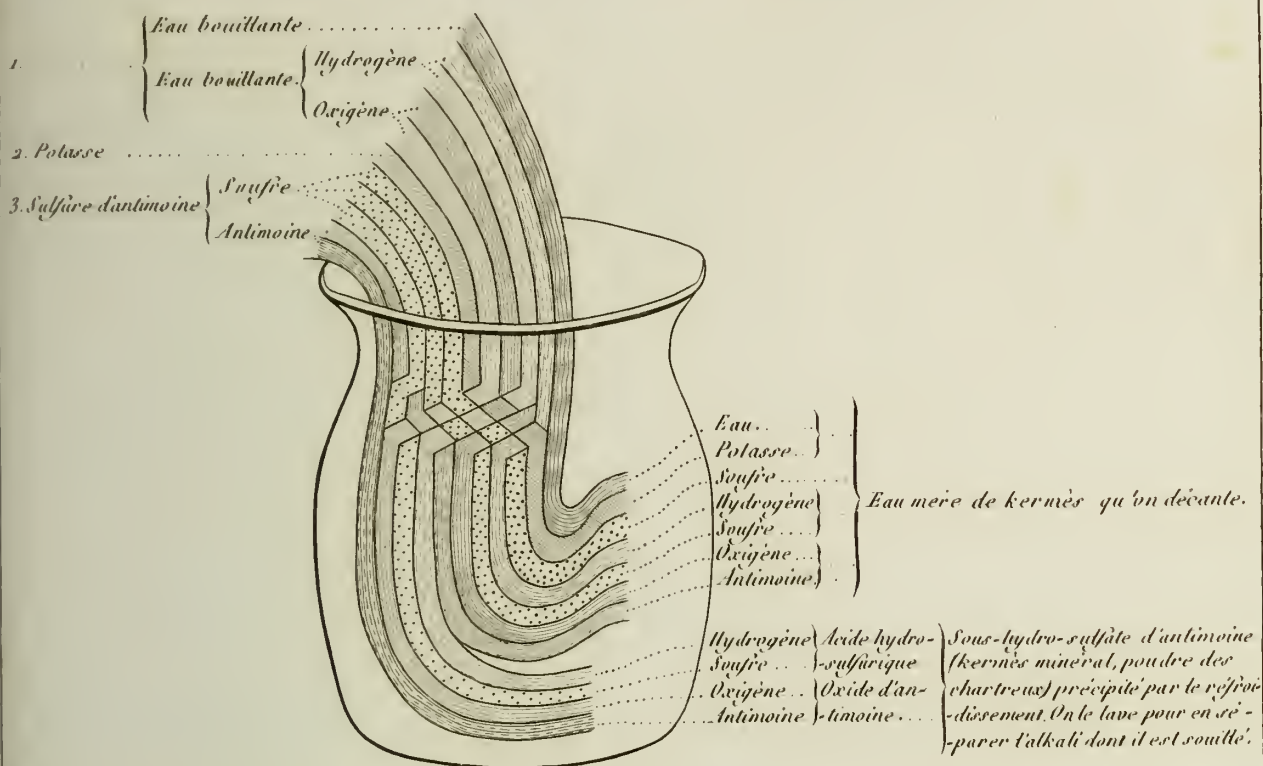 1.
Eau bouillante
Eau bouillante.
Hydrogène
Oxigène
2. Potasse
3. Sulfure d'antimoine
Soufre
Antimoine
Eau
Potasse
Soufre
Hydrogène
Soufre
Oxigène
Antimoine
Eau mere de kermès qu'on décante.
Hydrogène
Soufre
Oxigène
Antimoine
Acide hydro-
-sulfurique
Oxide d'an-
-timoine
Sous-hydro-sulfate d'antimoine
(kermès minéral, poudre des
chartreux) précipité par le réfroi-
-dissement. On le lave pour en sé-
-parer l'alkali dont il est souillé.